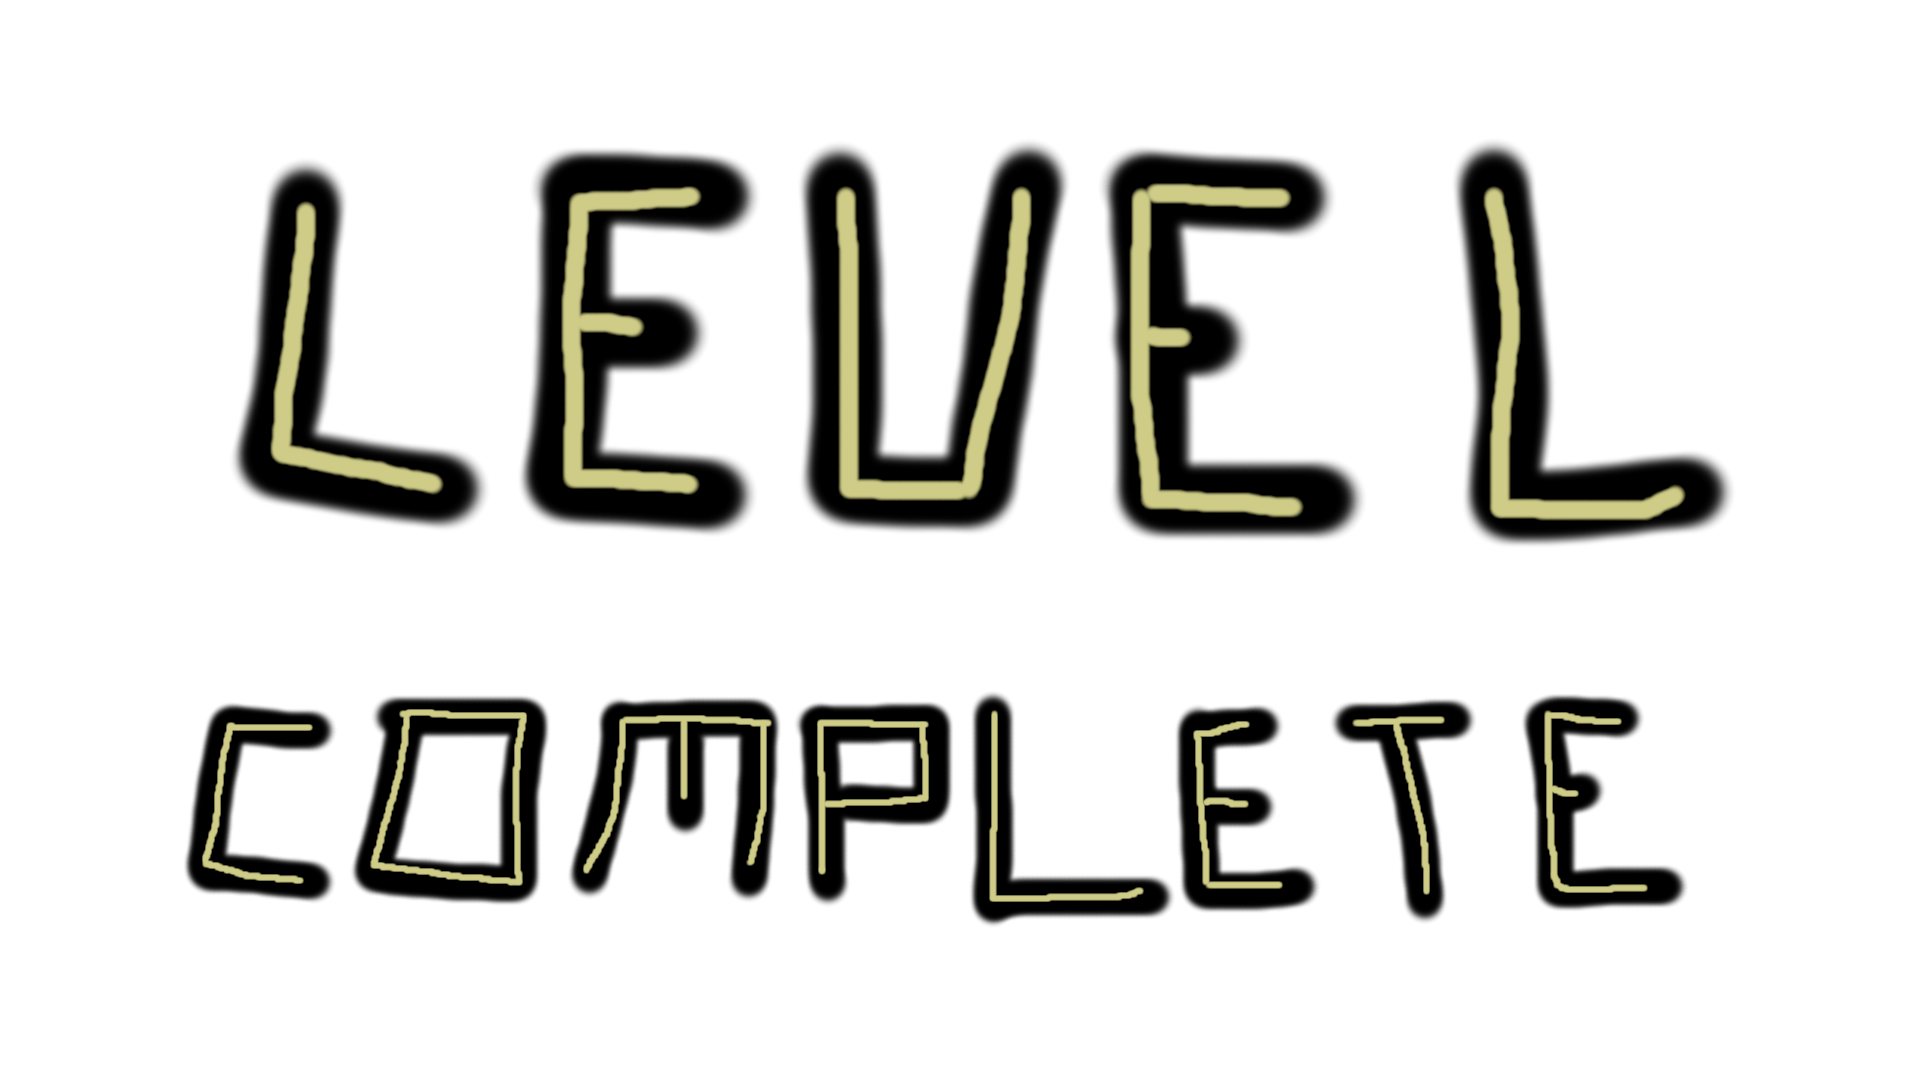 LEVEL
COMPLETE